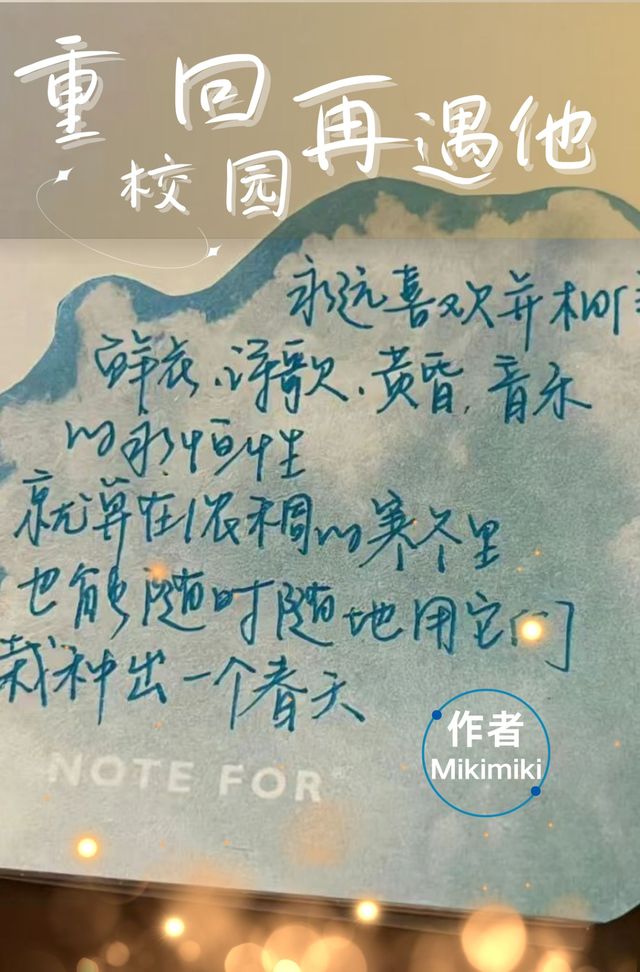 重回校园再遇他
永远喜欢并相信
鲜花、诗歌、黄昏、音乐
的永恒性
就算在浓稠的寒冬里
也能随时随地用它们
栽种出一个春天
NOTE FOR
作者
Mikimiki